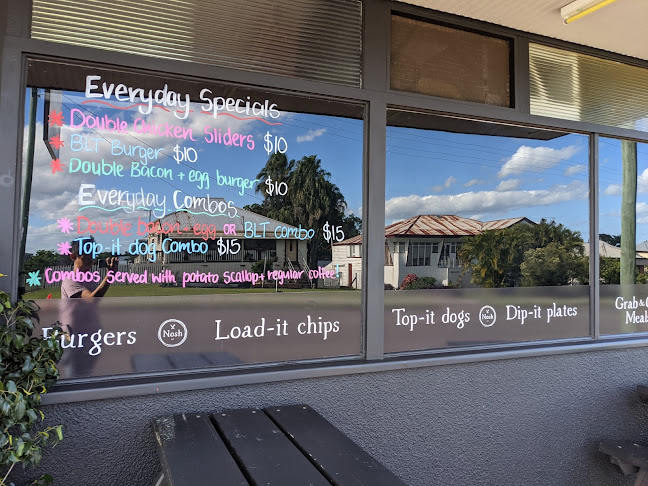 Everyday Specials
* Double Chicken Sliders $10
* BLT Burger $10
* Double Bacon + egg burger $10
Everyday Combos
* Double Bacon + egg OR BLT combo $15
* Top-it dog Combo $15
* Combos served with potato scallop + regular coffee!
Burgers Nosh Load-it chips
Top-it dogs Nosh Dip-it plates
Grab &
Meals